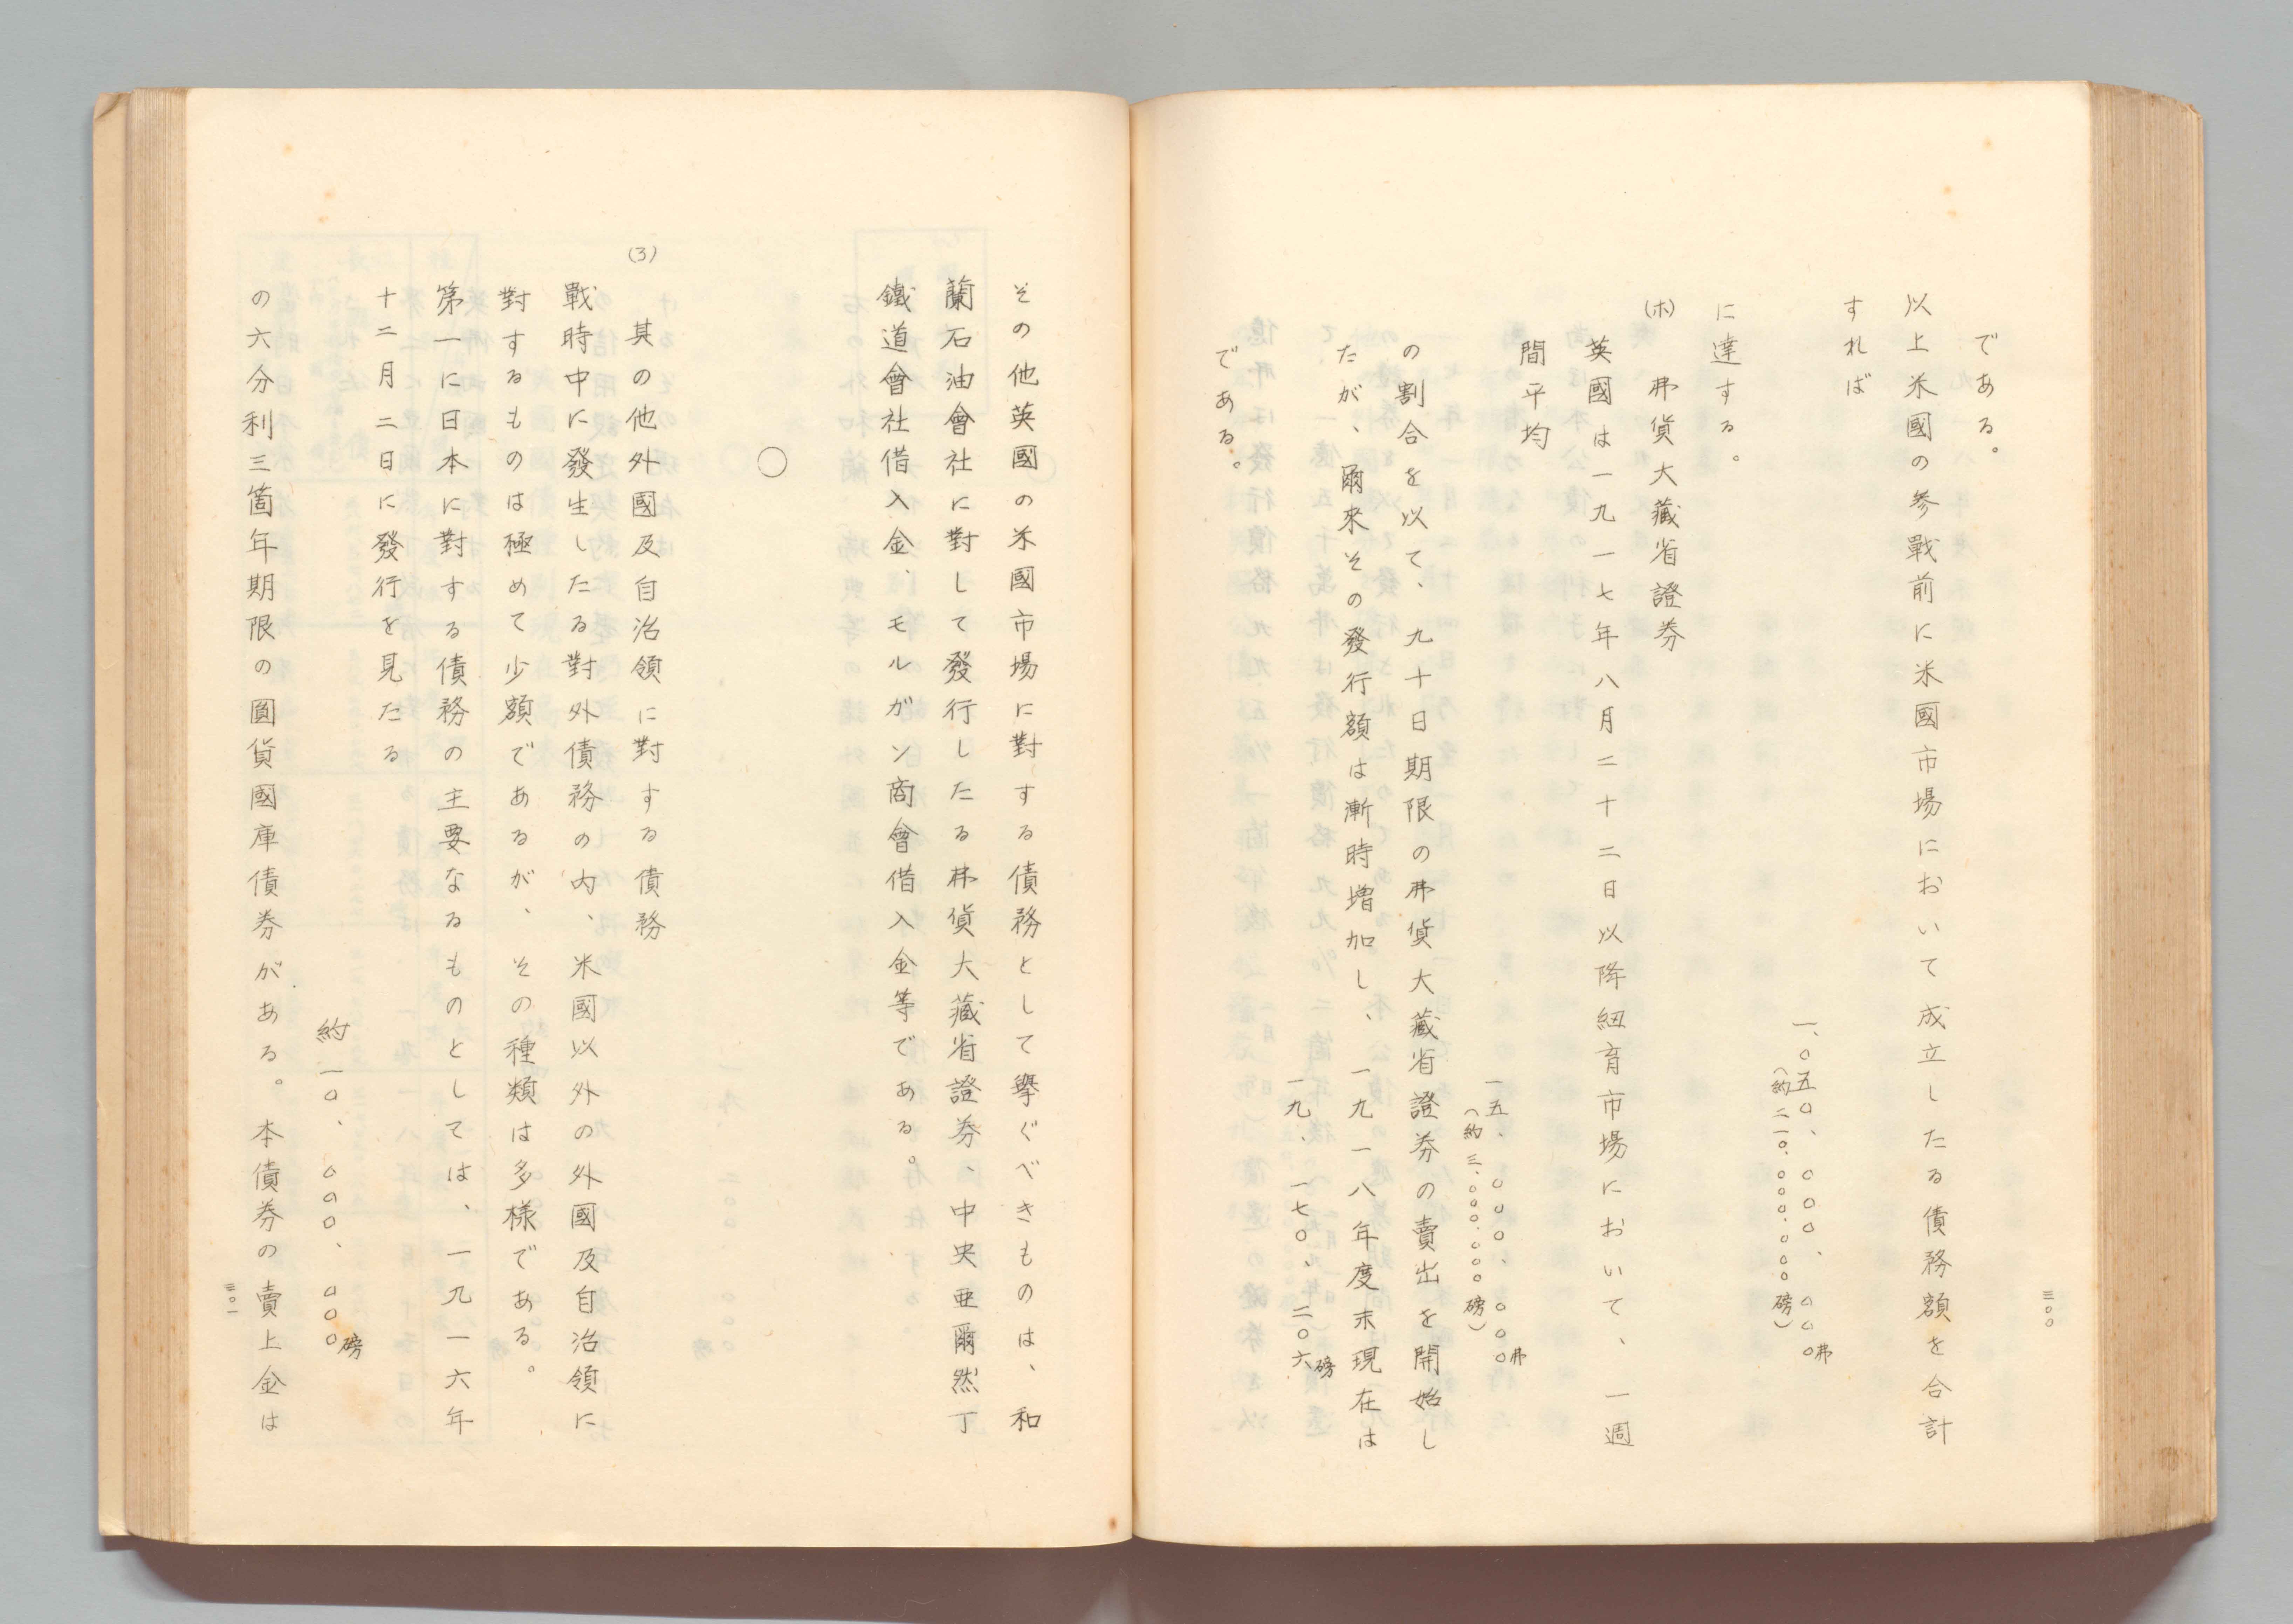 である。
以上米國の参戰前に米國市場において成立したる債務額を合計
すれば
一、〇五〇、〇〇〇、〇〇〇弗
(約二一〇、〇〇〇、〇〇〇磅)
に達する。
(ホ) 弗貨大藏省證券
英國は一九一七年八月二十二日以降紐育市場において、一週
間平均
一五、〇〇〇、〇〇〇弗
(約三、〇〇〇、〇〇〇磅)
の割合を以て、九十日期限の弗貨大藏省證券の賣出を開始し
たが、爾來その發行額は漸時増加し、一九一八年度末現在は
一九、一七〇、二〇六磅
である。
三〇〇
その他英國の米國市場に對する債務として擧ぐべきものは、和
蘭石油會社に對して發行したる弗貨大藏省證券、中央亜爾然丁
鐵道會社借入金、モルガン商會借入金等である。
〇
(3) 其の他外國及自治領に對する債務
戰時中に發生したる對外債務の内、米國以外の外國及自治領に
對するものは極めて少額であるが、その種類は多様である。
第一に日本に對する債務の主要なるものとしては、一九一六年
十二月二日に發行を見たる
約一〇、〇〇〇、〇〇〇磅
の六分利三箇年期限の圓貨國庫債券がある。本債券の賣上金は
三〇一